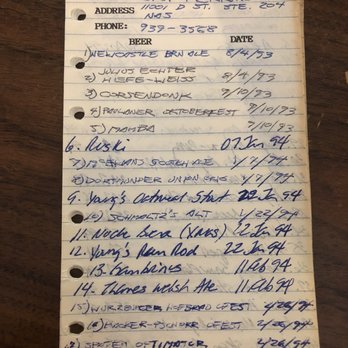 ADDRESS 11001 D ST. STE. 204
NAS
PHONE: 939-3568
BEER DATE
1) NEWCASTLE BRN ALE 8/4/93
JULIUS ECHTER
2) HEFE-WEISS 8/4/93
3) CORSENDONK 9/10/93
4) PAULANER OKTOBERFEST 9/10/93
5) MAMBA 9/10/93
6. Ruski 07 Jan 94
7) SCOTCH ALE 1/7/94
8) DORTMUNDER UNION 1/7/94
9. Young's Oatmeal Stout 22 Jan 94
10) SCHMALTZ'S ALT 1/22/94
11. Noche Buena (XMAS) 22 Jan 94
12. Young's Ram Rod 22 Jan 94
13. Gambrinus 11 Feb 94
14. Thames Welsh Ale 11 Feb 94
15) WURZBURGER HOFBRAU 2/26/94
16) HACKER-PSCHORR 2/26/94
SPATEN OPTIMATOR 2/26/94